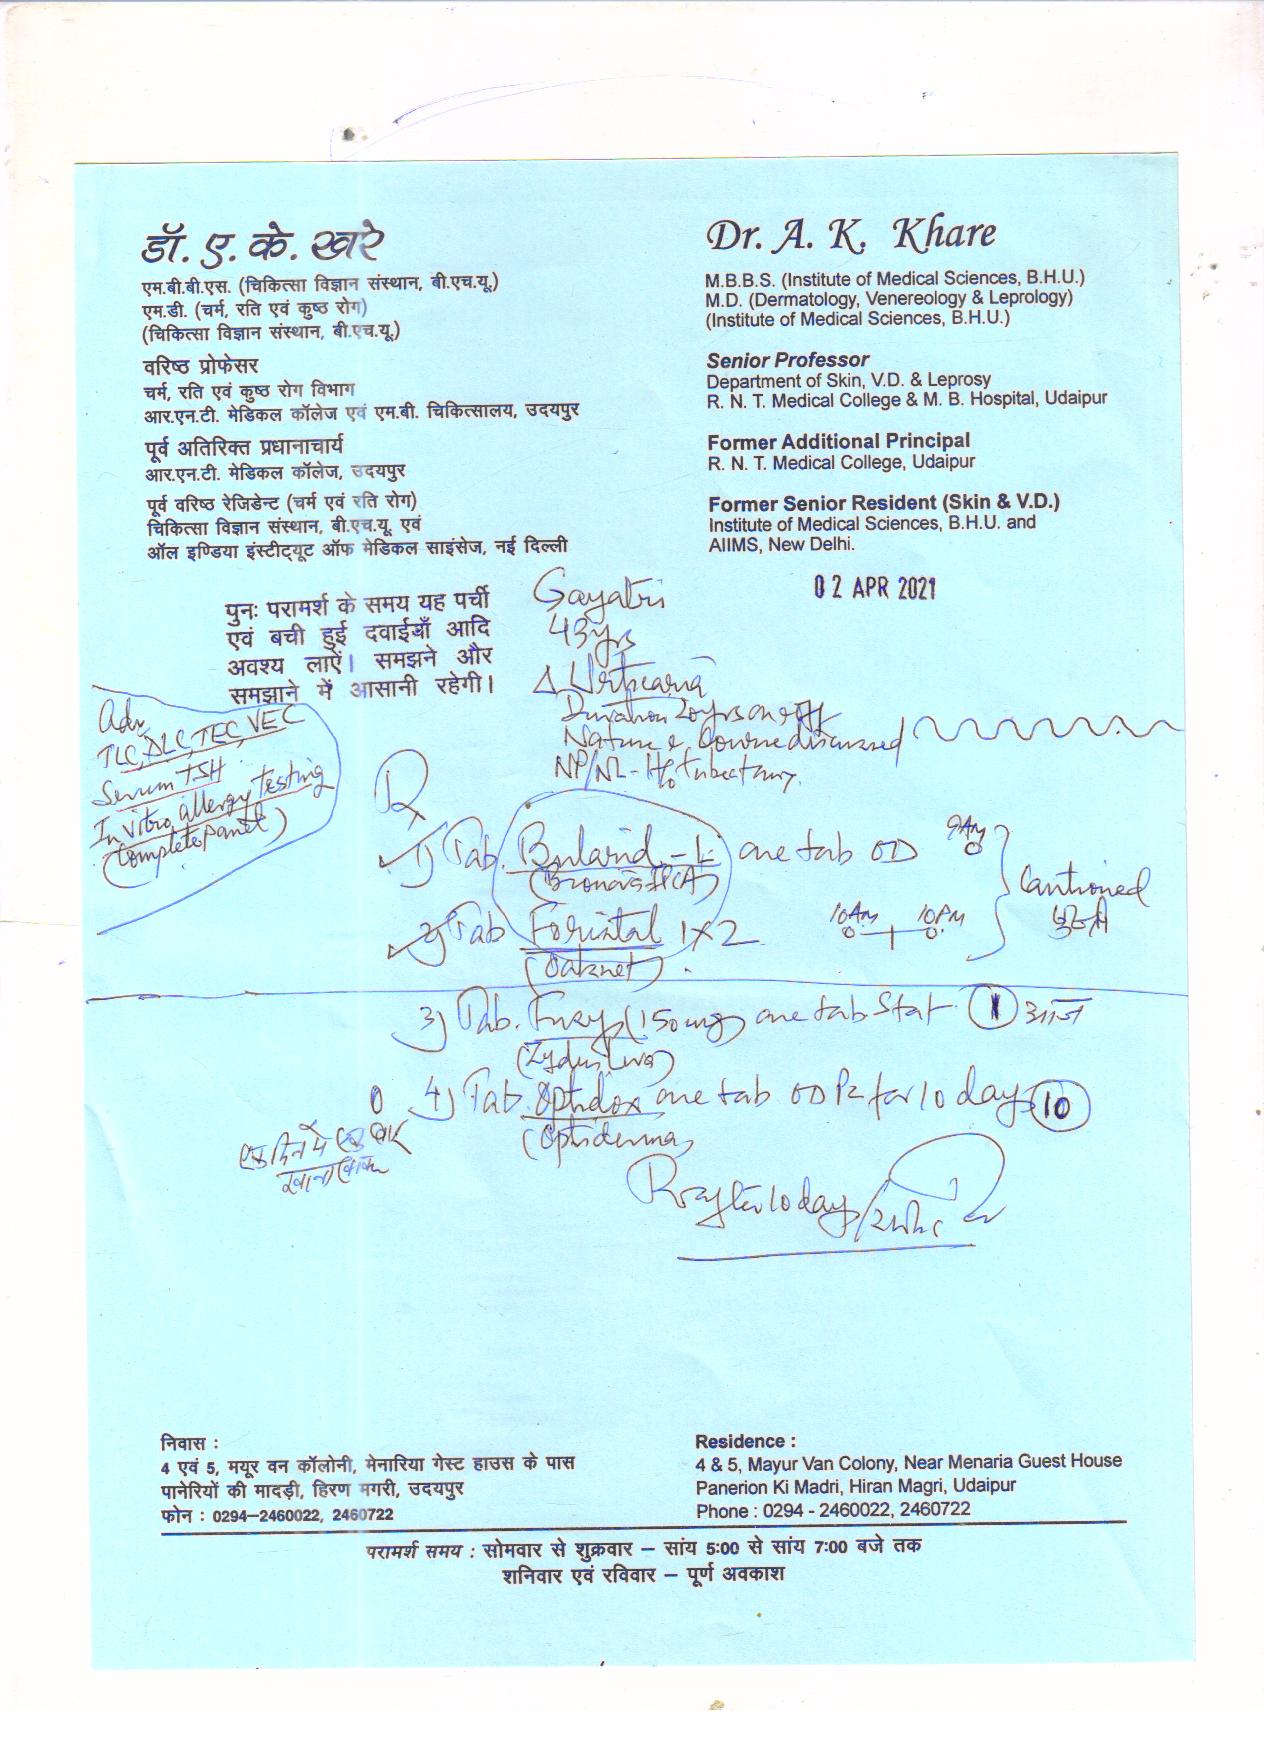 डॉ. ए. के. खरे
एम.बी.बी.एस. (चिकित्सा विज्ञान संस्थान, बी.एच.यू.)
एम.डी. (चर्म, रति एवं कुष्ठ रोग)
(चिकित्सा विज्ञान संस्थान, बी.एच.यू.)
वरिष्ठ प्रोफेसर
चर्म, रति एवं कुष्ठ रोग विभाग
आर.एन.टी. मेडिकल कॉलेज एवं एम.बी. चिकित्सालय, उदयपुर
पूर्व अतिरिक्त प्रधानाचार्य
आर.एन.टी. मेडिकल कॉलेज, उदयपुर
पूर्व वरिष्ठ रेजिडेन्ट (चर्म एवं रति रोग)
चिकित्सा विज्ञान संस्थान, बी.एच.यू. एवं
ऑल इण्डिया इंस्टीट्यूट ऑफ मेडिकल साइंसेज, नई दिल्ली
Dr. A. K. Khare
M.B.B.S. (Institute of Medical Sciences, B.H.U.)
M.D. (Dermatology, Venereology & Leprology)
(Institute of Medical Sciences, B.H.U.)
Senior Professor
Department of Skin, V.D. & Leprosy
R. N. T. Medical College & M. B. Hospital, Udaipur
Former Additional Principal
R. N. T. Medical College, Udaipur
Former Senior Resident (Skin & V.D.)
Institute of Medical Sciences, B.H.U. and
AIIMS, New Delhi.
02 APR 2021
पुनः परामर्श के समय यह पर्ची
एवं बची हुई दवाईयाँ आदि
अवश्य लाऐं। समझने और
समझाने में आसानी रहेगी।
Gayatri
43yrs
Δ Urticaria
Duration 20yrs on & off
Nature & Course discussed
NP/NL - H/o tubectomy.
Adv
TLC, DLC, TEC, VEC
Serum TSH
In vitro allergy testing
(Complete panel)
Rx
1) Tab. one tab OD 9AM
2) Tab 1X2 10AM 10PM
Cautioned
3) Tab. (150mg) one tab Stat 1 आज
(Zydus
4) Tab. Optidox one tab OD for 10 days 10
(Optiderma)
एक दिन में एक बार
खाना खाकर
10 days
निवास :
4 एवं 5, मयूर वन कॉलोनी, मेनारिया गेस्ट हाउस के पास
पानेरियों की मादड़ी, हिरण मगरी, उदयपुर
फोन : 0294–2460022, 2460722
Residence :
4 & 5, Mayur Van Colony, Near Menaria Guest House
Panerion Ki Madri, Hiran Magri, Udaipur
Phone : 0294 - 2460022, 2460722
परामर्श समय : सोमवार से शुक्रवार – सांय 5:00 से सांय 7:00 बजे तक
शनिवार एवं रविवार – पूर्ण अवकाश